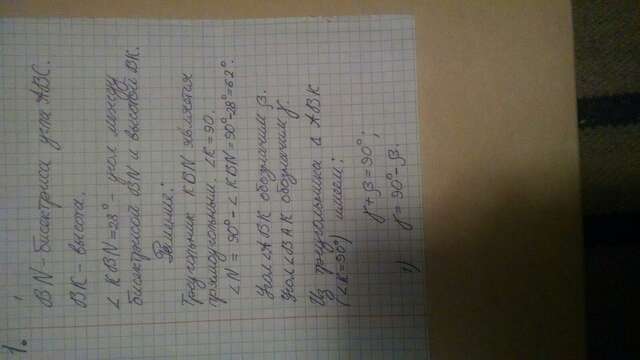 1.
BN - биссектриса угла ABC.
BK - высота.
∠ KBN = 28° - угол между
биссектрисой BN и высотой BK.
Решение:
Треугольник KBN является
прямоугольным. ∠K = 90.
∠N = 90° - ∠ KBN = 90° - 28° = 62°
Угол ∠ABK обозначим β.
Угол ∠BAK обозначим γ.
Из треугольника Δ ABK
(∠K = 90°) имеем:
γ + β = 90° ;
1) γ = 90° - β.